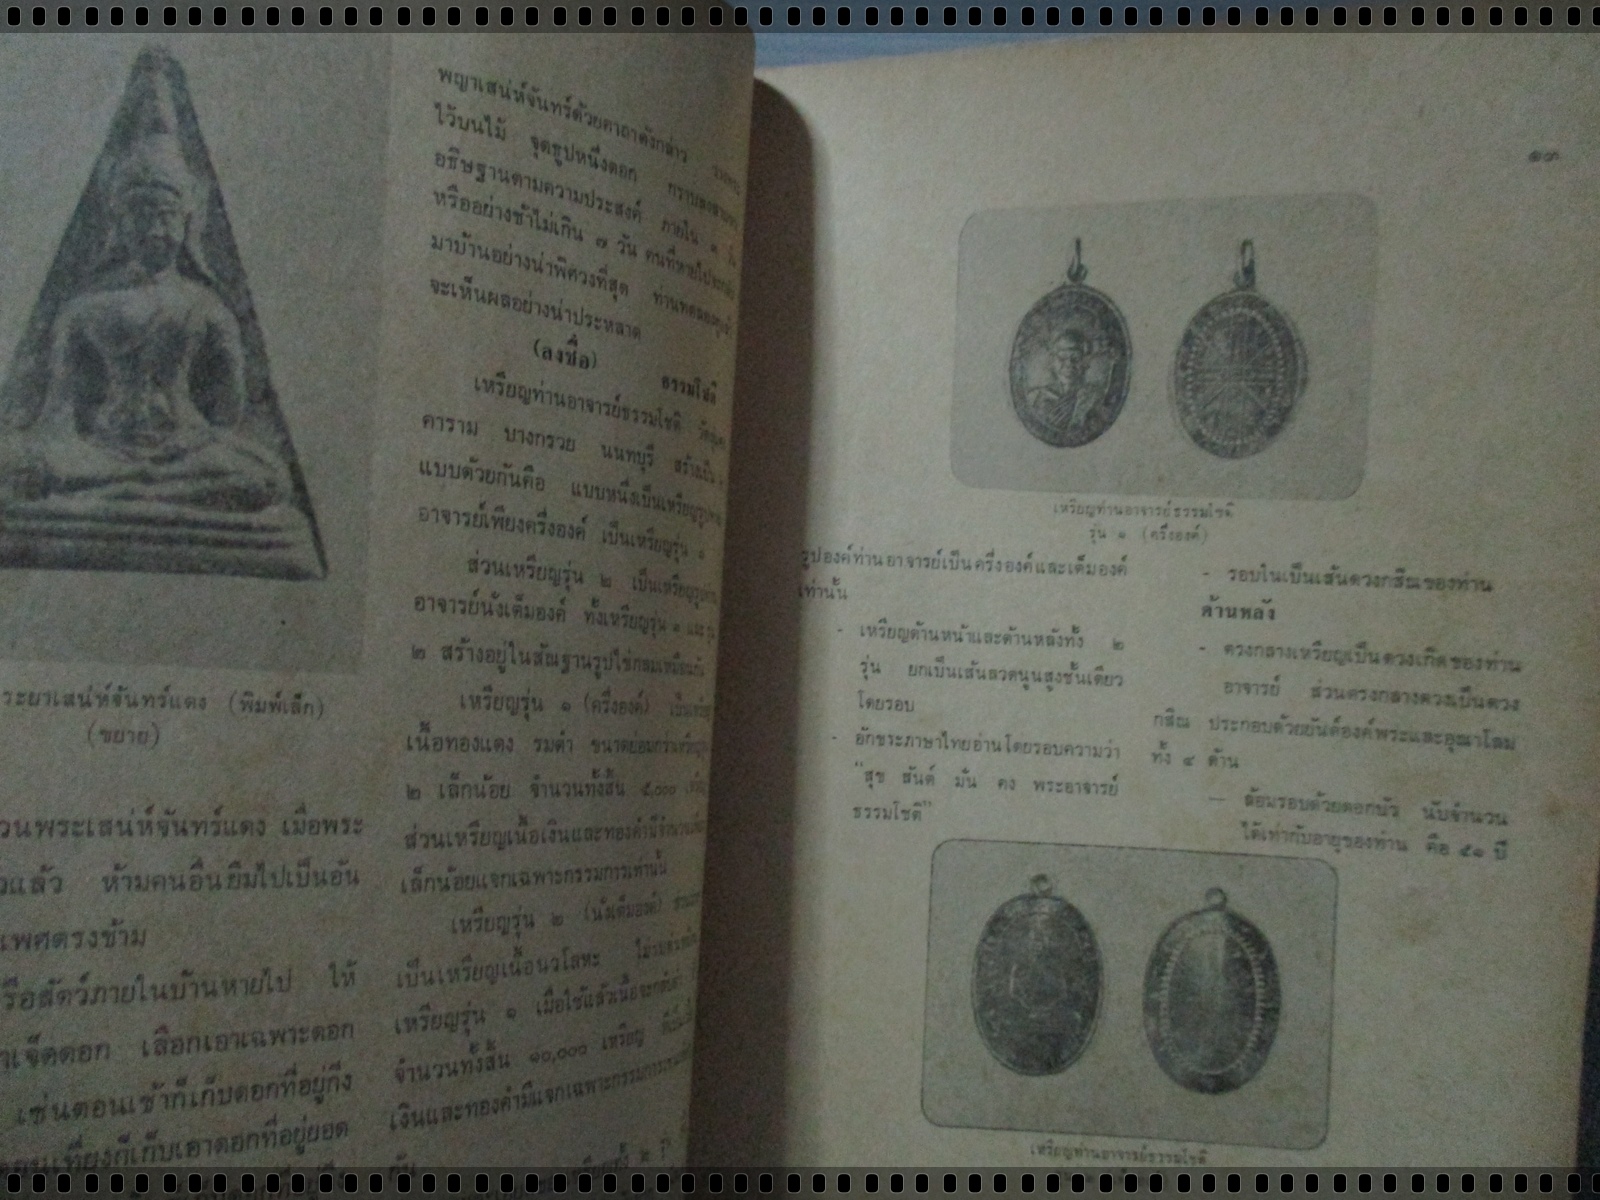 ระยาเสน่ห์จันทร์แดง (พิมพ์เล็ก)
(ขยาย)
วนพระเสน่ห์จันทร์แดง เมื่อพระ
วแล้ว ห้ามคนอื่นยืมไปเป็นอัน
เพศตรงข้าม
รือสัตว์ภายในบ้านหายไป ให้
าเจ็ดดอก เลือกเอาเฉพาะดอก
เช่นตอนเช้าก็เก็บดอกที่อยู่กึ่ง
ตอนเที่ยงก็เก็บเอาดอกที่อยู่ยอด
พญาเสน่ห์จันทร์ด้วยคาถาดังกล่าว
ไว้บนไม้ จุดธูปหนึ่งดอก
อธิษฐานตามความประสงค์ ภายใน ๓
หรืออย่างช้าไม่เกิน ๗ วัน คนที่หายไป
มาบ้านอย่างน่าพิศวงที่สุด
จะเห็นผลอย่างน่าประหลาด
(ลงชื่อ) ธรรมโชติ
เหรียญท่านอาจารย์ธรรมโชติ
คาราม บางกรวย นนทบุรี สร้างเป็น
แบบด้วยกันคือ แบบหนึ่งเป็นเหรียญ
อาจารย์เพียงครึ่งองค์ เป็นเหรียญรุ่น ๑
ส่วนเหรียญรุ่น ๒ เป็นเหรียญ
อาจารย์นั่งเต็มองค์ ทั้งเหรียญรุ่น ๑ และ
๒ สร้างอยู่ในสัณฐานรูปไข่กลมเหมือนกัน
เหรียญรุ่น ๑ (ครึ่งองค์)
เนื้อทองแดง รมดำ ขนาดย่อมกว่าเหรียญ
๒ เล็กน้อย จำนวนทั้งสิ้น ๕,๐๐๐
ส่วนเหรียญเนื้อเงินและทองคำมีจำนวน
เล็กน้อยแจกเฉพาะกรรมการเท่านั้น
เหรียญรุ่น ๒ (นั่งเต็มองค์)
เป็นเหรียญเนื้อนวโลหะ
เหรียญรุ่น ๑ เมื่อใช้แล้วเนื้อจะกลับ
จำนวนทั้งสิ้น ๑๐,๐๐๐ เหรียญ
เงินและทองคำมีแจกเฉพาะกรรมการ
กัน
๑๓
เหรียญท่านอาจารย์ธรรมโชติ
รุ่น ๑ (ครึ่งองค์)
รูปองค์ท่านอาจารย์เป็นครึ่งองค์และเต็มองค์
เท่านั้น
- เหรียญด้านหน้าและด้านหลังทั้ง ๒
รุ่น ยกเป็นเส้นลวดนูนสูงชั้นเดียว
โดยรอบ
- อักขระภาษาไทยอ่านโดยรอบความว่า
"สุข สันต์ มั่น คง พระอาจารย์
ธรรมโชติ"
- รอบในเป็นเส้นดวงกสิณของท่าน
ด้านหลัง
- ดวงกลางเหรียญเป็นดวงเกิดของท่าน
อาจารย์ ส่วนตรงกลางดวงเป็นดวง
กสิณ ประกอบด้วยยันต์องค์พระและอุณาโลม
ทั้ง ๔ ด้าน
— ล้อมรอบด้วยดอกบัว นับจำนวน
ได้เท่ากับอายุของท่าน คือ ๕๑ ปี
เหรียญท่านอาจารย์ธรรมโชติ